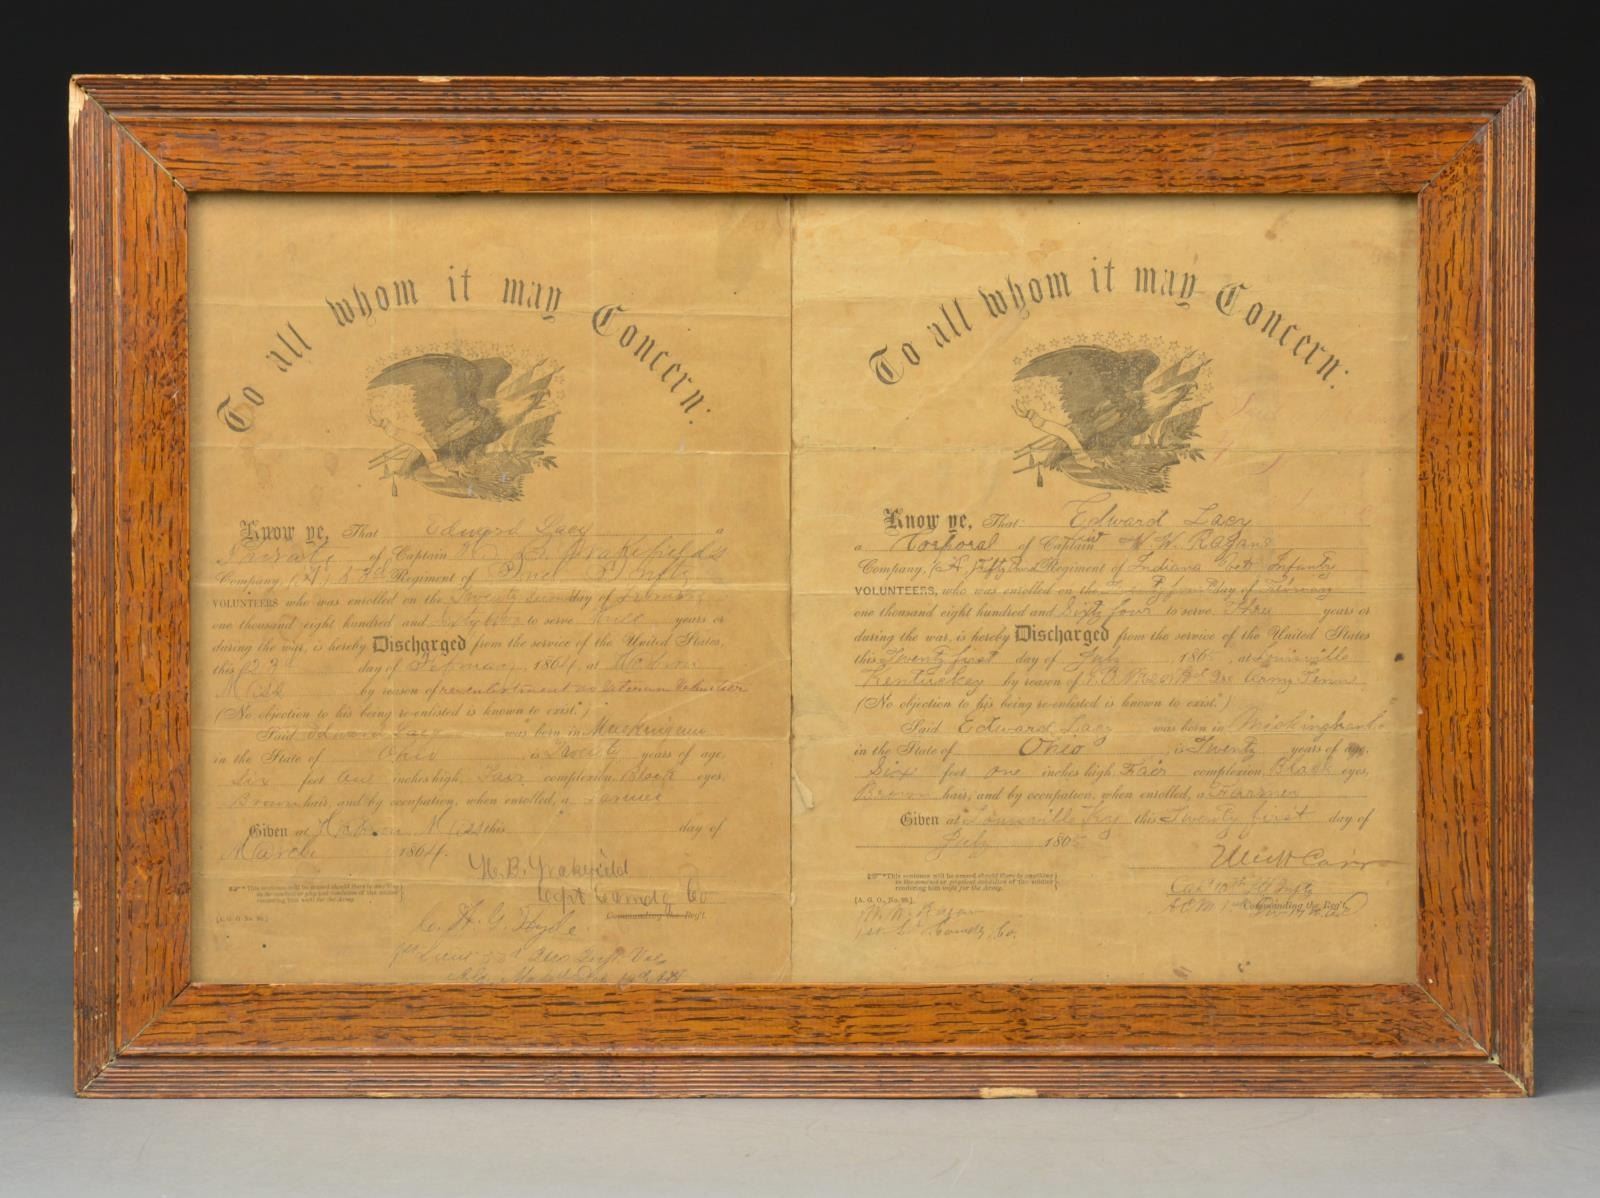 To all whom it may Concern:
Know ye, That Edward Lacy a
Private of Captain B. Wakefields
Company, (A,) 53d Regiment of
VOLUNTEERS who was enrolled on the Twenty second day of
one thousand eight hundred and to serve years or
during the war, is hereby Discharged from the service of the United States,
this 23d day of , 1864, at Hebron
Miss by reason of re-enlistment as Veteran Volunteer
(No objection to his being re-enlisted is known to exist.*)
Said Edward Lacy was born in Muskingum
in the State of Ohio is Twenty years of age,
Six feet one inches high, Fair complexion, Black eyes,
Brown hair, and by occupation, when enrolled, a Farmer
Given at Hebron Miss this day of
March 1864.
*This sentence will be erased should there be anything
in the conduct or physical condition of the soldier
rendering him unfit for the Army.
[A. G. O., No. 99.]
B. Wakefield
Capt Comdg Co
Commanding the Reg't.
G. Hyde
1st Lieut 53d Inft. Vol
To all whom it may Concern:
Know ye, That Edward Lacy
a Corporal of Captain W. W. Ragans
Company, (A,) Fifty third Regiment of Indiana vet Infantry
VOLUNTEERS, who was enrolled on the day of
one thousand eight hundred and Sixty four to serve Three years or
during the war, is hereby Discharged from the service of the United States
this Twenty first day of July, 1865, at Louisville
Kentucky by reason of Army Tenn
(No objection to his being re-enlisted is known to exist.*)
Said Edward Lacy was born in
in the State of Ohio, is Twenty years of age,
Six feet one inches high, Fair complexion, Black eyes,
Brown hair, and by occupation, when enrolled, a Farmer
Given at Louisville Ky this Twenty first day of
July 1865
*This sentence will be erased should there be anything
in the conduct or physical condition of the soldier
rendering him unfit for the Army.
[A. G. O., No. 99.]
Carr
Capt 10th Ill Infty
A.C.M. Commanding the Reg't.
W. W. Ragan
1st Lt Comdg Co.